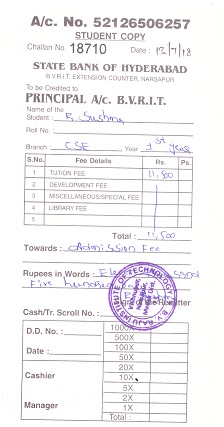 A/c. No. 52126506257
STUDENT COPY
Challan No. 18710 Date : 13/7/18
STATE BANK OF HYDERABAD
B.V.R.I.T. EXTENSION COUNTER, NARSAPUR
To be Credited to
PRINCIPAL A/c. B.V.R.I.T.
Name of the
Student : B. Sushma
Roll No.
Branch CSE Year 1st Year
S.No. Fee Details Rs. Ps.
1 TUTION FEE 11,500
2 DEVELOPMENT FEE
3 MISCELLANEOUS/SPECIAL FEE
4 LIBRARY FEE
5
Total : 11,500
Towards : Admission Fee
Rupees in Words :
Five hundred
Remitter
Cash/Tr. Scroll No. :
D.D. No. : 1000X
500X
Date : 100X
50X
20X
Cashier 10X
5X
2X
Manager 1X
Total :